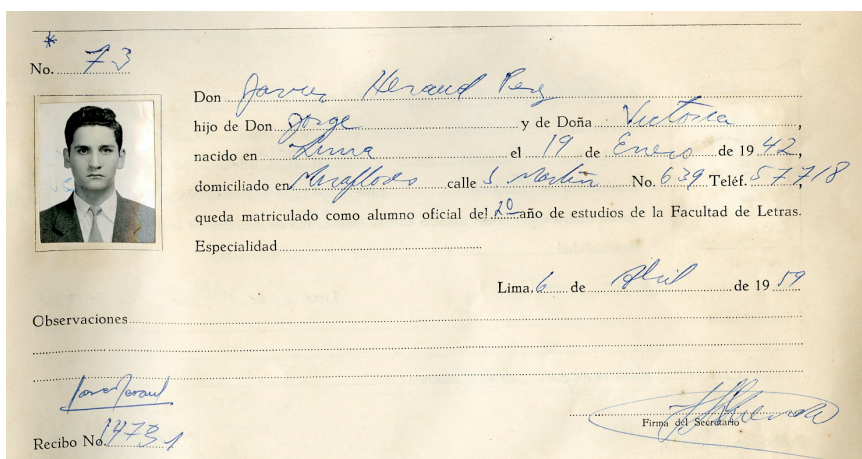 *
No. 73
Don Javier Heraud Perez
hijo de Don Jorge y de Doña Victoria,
nacido en Lima el 19 de Enero de 1942,
domiciliado en Miraflores calle S. Martin No. 639 Teléf. 57718,
queda matriculado como alumno oficial del 2º año de estudios de la Facultad de Letras.
Especialidad
Lima, 6 de Abril de 1959
Observaciones
Firma del Secretario
Recibo No. 14731